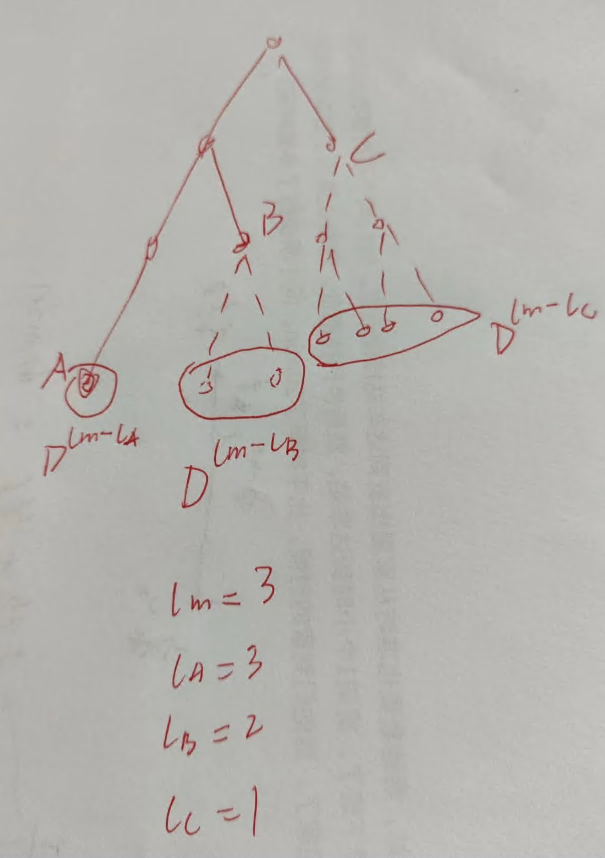 C
B
A
D^{lm-lC}
D^{lm-lA}
D^{lm-lB}
lm = 3
lA = 3
lB = 2
lC = 1